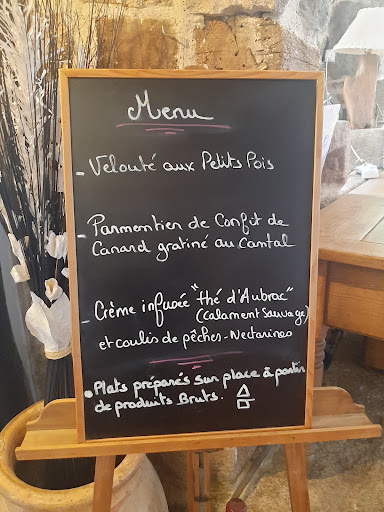 Menu
- Velouté aux Petits Pois
- Parmentier de Confit de
Canard gratiné au Cantal
- Crème infusée "thé d'Aubrac"
(Calament Sauvage)
et coulis de pêches-Nectarines
• Plats préparés sur place à partir
de produits Bruts.